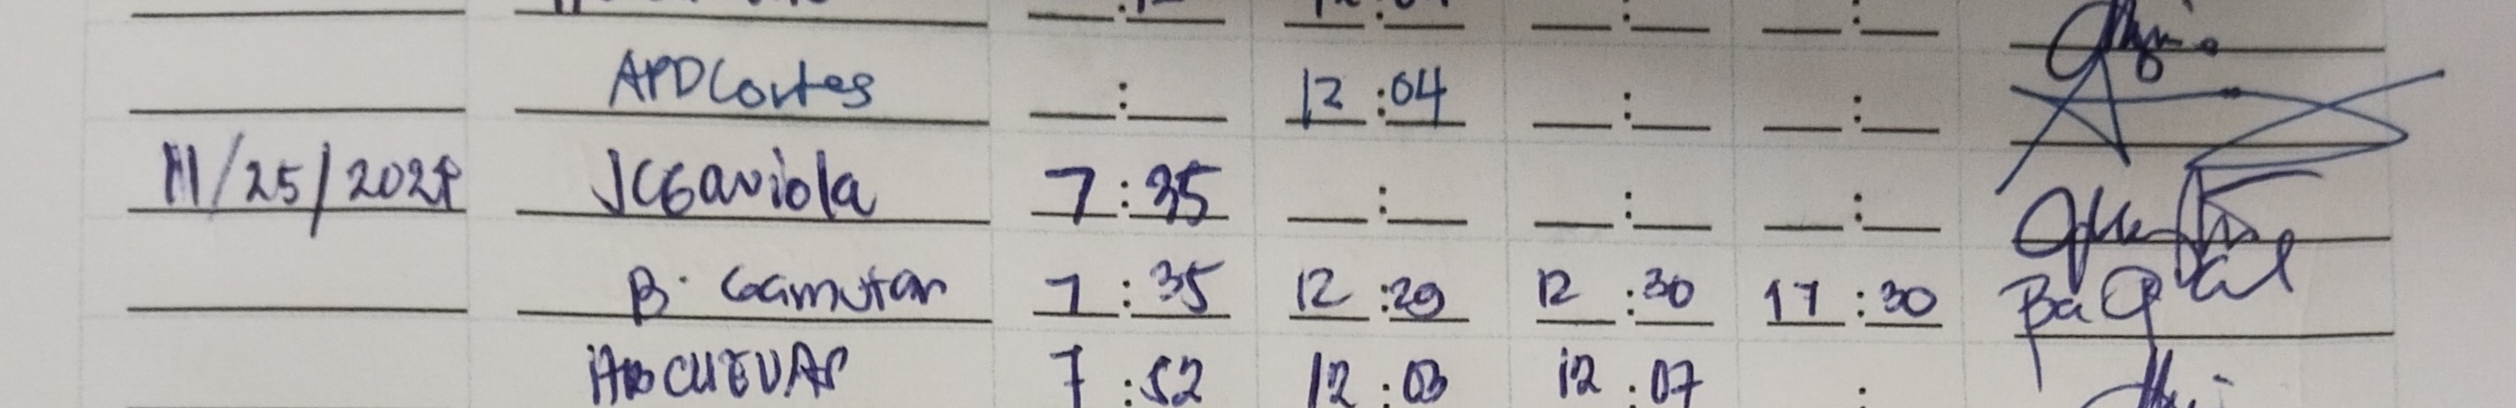 APDCortes 12:04
11/25/2024 JCGaviola 7:35
B. Gamutan 7:35 12:29 12:30 17:30
7:52 12:03 12:07